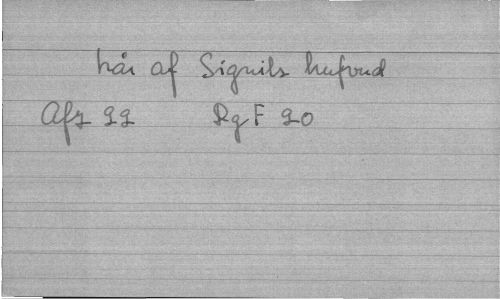 hår af Signils hufvud
Afz 22 RgF 20